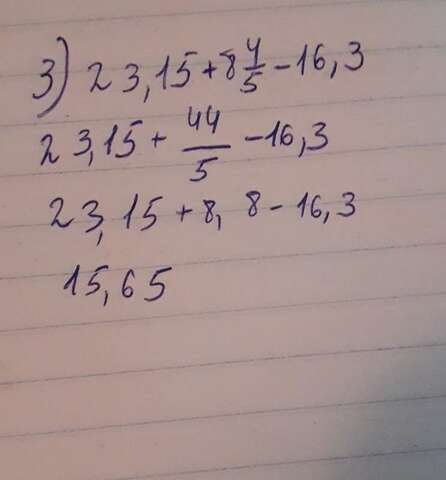 3) 23,15+8 4/5-16,3
23,15+ 44/5 -16,3
23,15+8,8-16,3
15,65